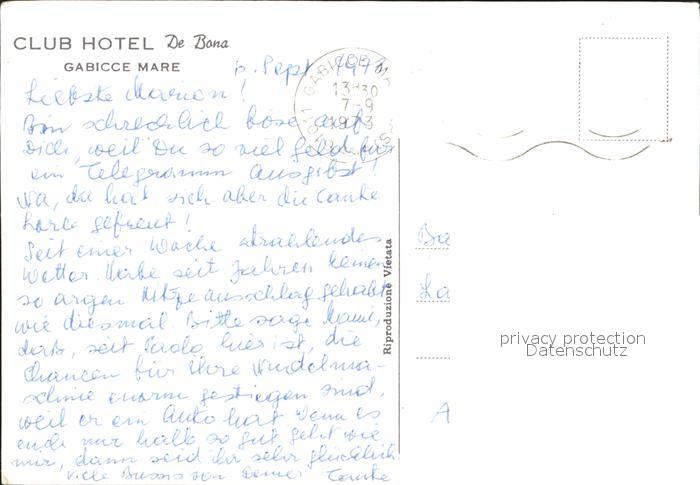 CLUB HOTEL De Bona
GABICCE MARE
. Sept. 1973
Liebste Marion!
Bin schrecklich böse auf
Dich, weil Du so viel Geld für
ein Telegramm ausgibst!
Na, da hat sich aber die Tante
Lore gefreut!
Seit einer Woche strahlendes
Wetter. Habe seit Jahren keinen
so argen Hitzeausschlag gehabt
wie diesmal. Bitte sage Mami,
daß, seit Paolo hier ist, die
Chancen für Ihre Nudelma-
schine enorm gestiegen sind,
weil er ein Auto hat. Wenn es
euch nur halb so gut geht wie
mir, dann seid ihr sehr glücklich
Viele Bussis von Deiner Tante
GABICCE MA
13H30
7-9
1973
Riproduzione Vietata
Ba
La
A
privacy protection
Datenschutz